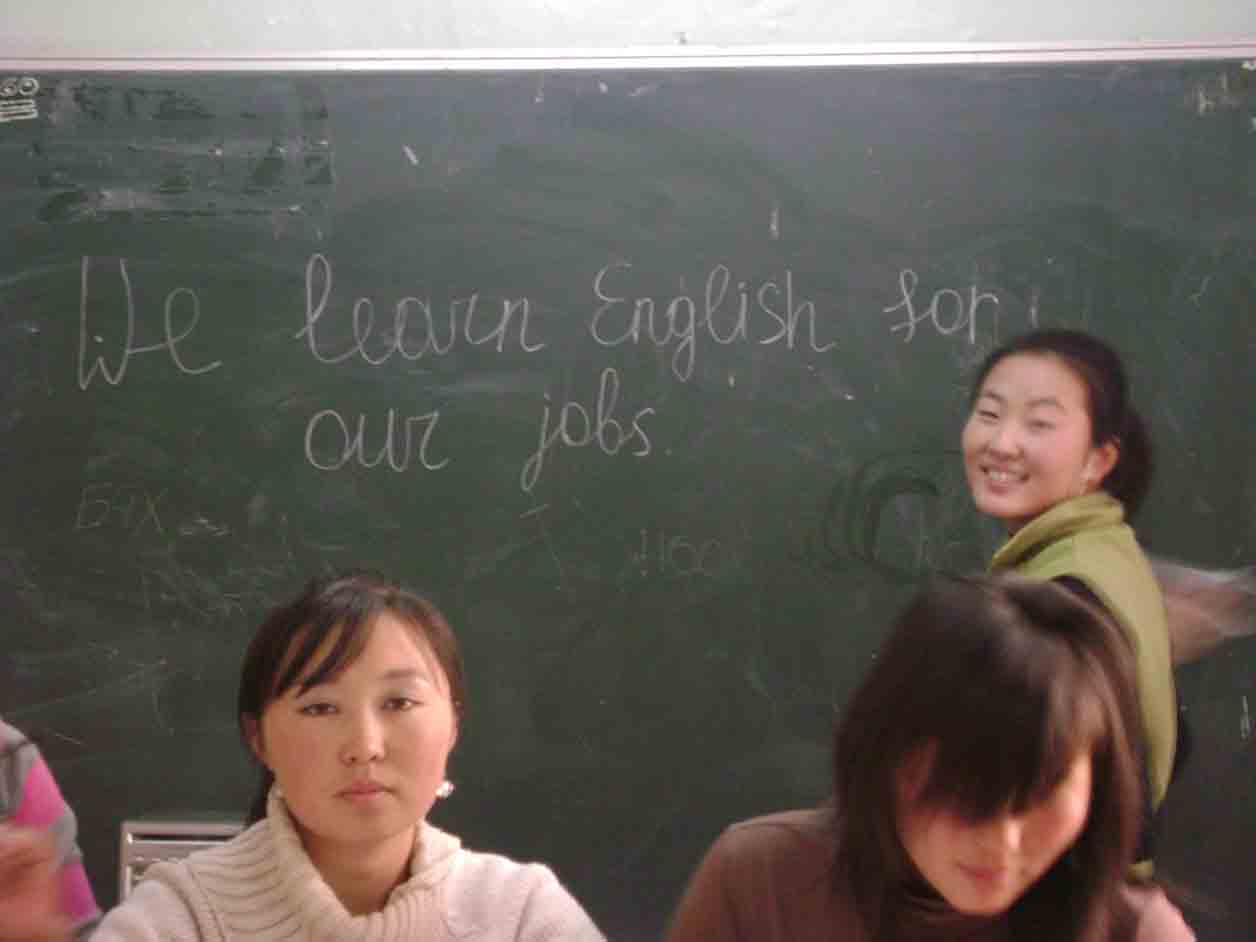 We learn English for
our jobs.